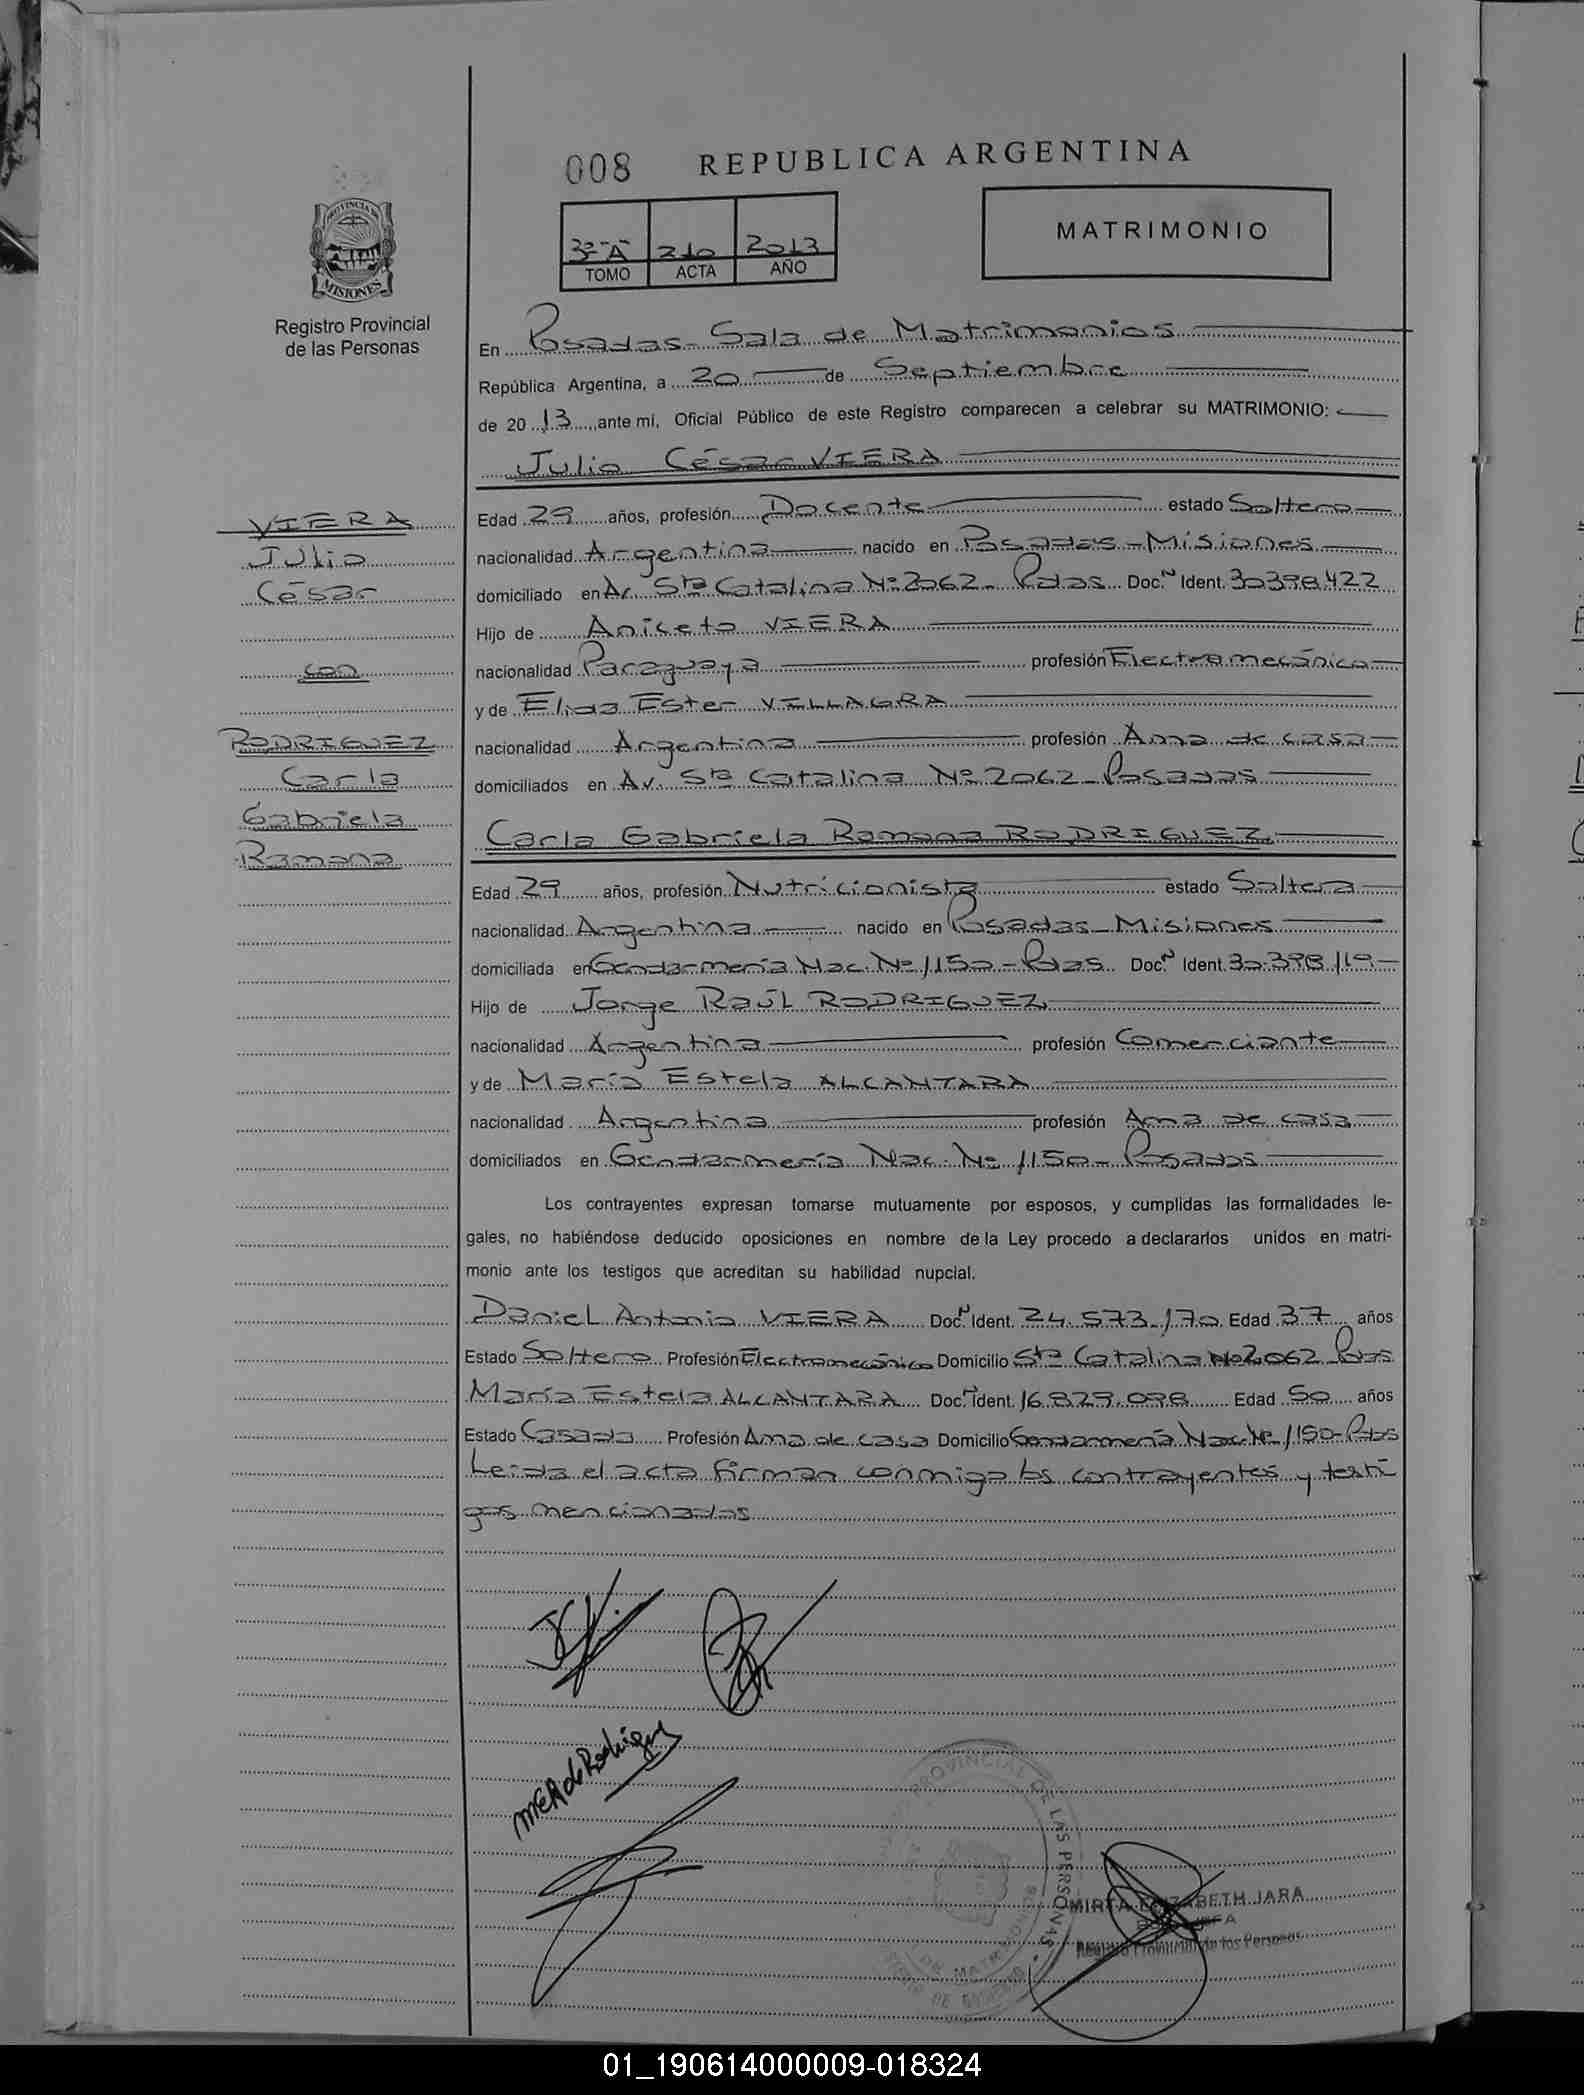 008 REPUBLICA ARGENTINA
PROVINCIA DE
MISIONES
Registro Provincial
de las Personas
3º "A" 210 2013
TOMO ACTA AÑO
MATRIMONIO
En Posadas - Sala de Matrimonios
República Argentina, a 20 de Septiembre
de 2013 ante mi, Oficial Público de este Registro comparecen a celebrar su MATRIMONIO:
Julio César VIERA
VIERA
Julio
César
con
RODRIGUEZ
Carla
Gabriela
Ramona
Edad 29 años, profesión Docente estado Soltero
nacionalidad Argentina nacido en Posadas - Misiones
domiciliado en Av. Sta Catalina Nº 2062 - Pdas Doc.N Ident. 30398.422
Hijo de Aniceto VIERA
nacionalidad Paraguaya profesión Electromecánico
y de Elida Ester VILLAGRA
nacionalidad Argentina profesión Ama de casa
domiciliados en Av. Sta Catalina Nº 2062 - Posadas
Carla Gabriela Ramona RODRIGUEZ
Edad 29 años, profesión Nutricionista estado Soltera
nacionalidad Argentina nacido en Posadas - Misiones
domiciliada en Gendarmería Nac. Nº 1150 - Pdas Doc.N Ident. 30.398.119
Hijo de Jorge Raúl RODRIGUEZ
nacionalidad Argentina profesión Comerciante
y de María Estela ALCANTARA
nacionalidad Argentina profesión Ama de casa
domiciliados en Gendarmería Nac. Nº 1150 - Posadas
Los contrayentes expresan tomarse mutuamente por esposos, y cumplidas las formalidades le-
gales, no habiéndose deducido oposiciones en nombre de la Ley procedo a declararlos unidos en matri-
monio ante los testigos que acreditan su habilidad nupcial.
Daniel Antonio VIERA Doc.N Ident. 24.573.170 Edad 37 años
Estado Soltero Profesión Electromecánico Domicilio Sta Catalina Nº 2062 Pdas
María Estela ALCANTARA Doc.N Ident. 16.829.098 Edad 50 años
Estado Casada Profesión Ama de casa Domicilio Gendarmería Nac. Nº 1150 - Pdas
Leida el acta firman conmigo los contrayentes y testi
gos mencionados
MEA de Rodriguez
PROVINCIAL DE LAS PERSONAS
DE MATRIMONIOS
MIRTA ELIZABETH JARA
Registro Provincial de las Personas
01_190614000009-018324